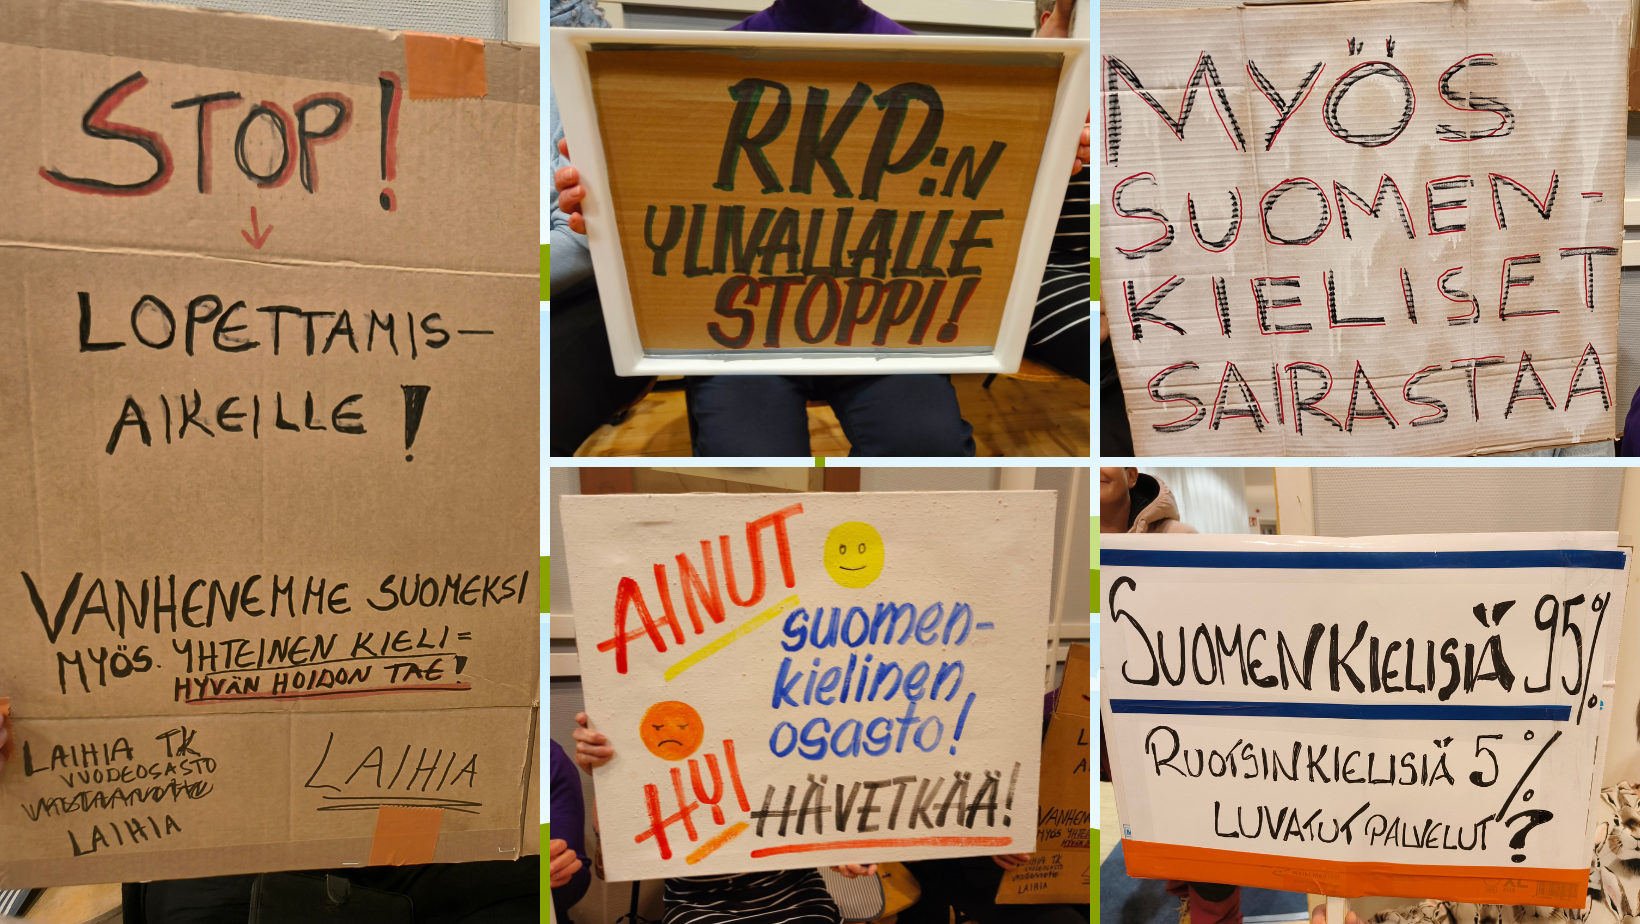 STOP!
LOPETTAMIS-
AIKEILLE!
VANHENEMME SUOMEKSI
MYÖS. YHTEINEN KIELI=
HYVÄN HOIDON TAE!
LAIHIA TK
VUODEOSASTO
LAIHIA
LAIHIA
RKP:N
YLIVALLALLE
STOPPI!
MYÖS
SUOMEN-
KIELISET
SAIRASTAA
AINUT
suomen-
kielinen
osasto!
HYI
HÄVETKÄÄ!
VANHEN
MYÖS YHTE
LAIHIA TK
LAIHIA
SUOMENKIELISIÄ 95%
RUOTSINKIELISIÄ 5%
LUVATUT PALVELUT?
XL